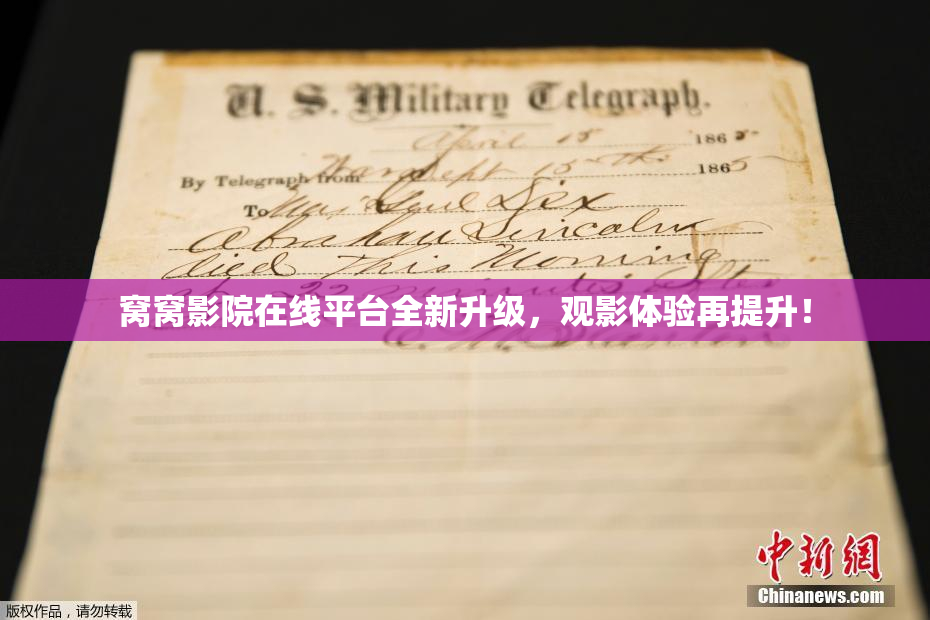 U. S. Military Telegraph.
April 15 1865
By Telegraph from War Dept 15th 1865
To Maj Genl Dix
Abraham Lincoln
died This Morning
22 minutes after
窝窝影院在线平台全新升级，观影体验再提升！
中新网
Chinanews.com
版权作品，请勿转载